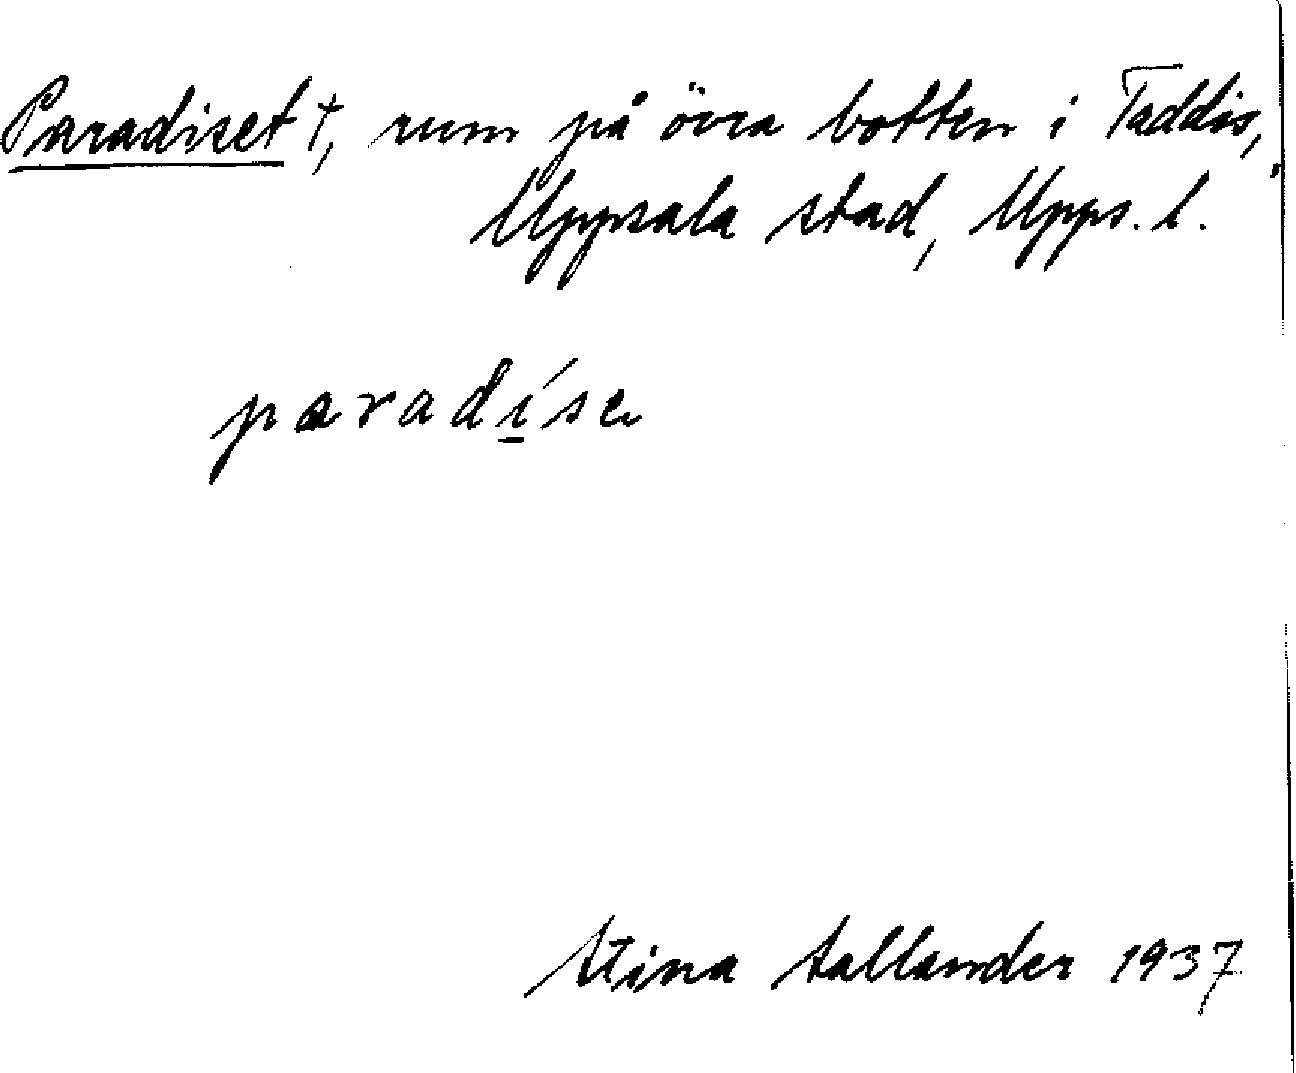 Paradiset †, rum på övra botten i Taddis,
Uppsala stad, Upps. l.
paradíse
Stina Sallander 1937